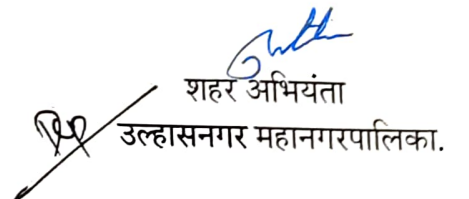 शहर अभियंता
उल्हासनगर महानगरपालिका.